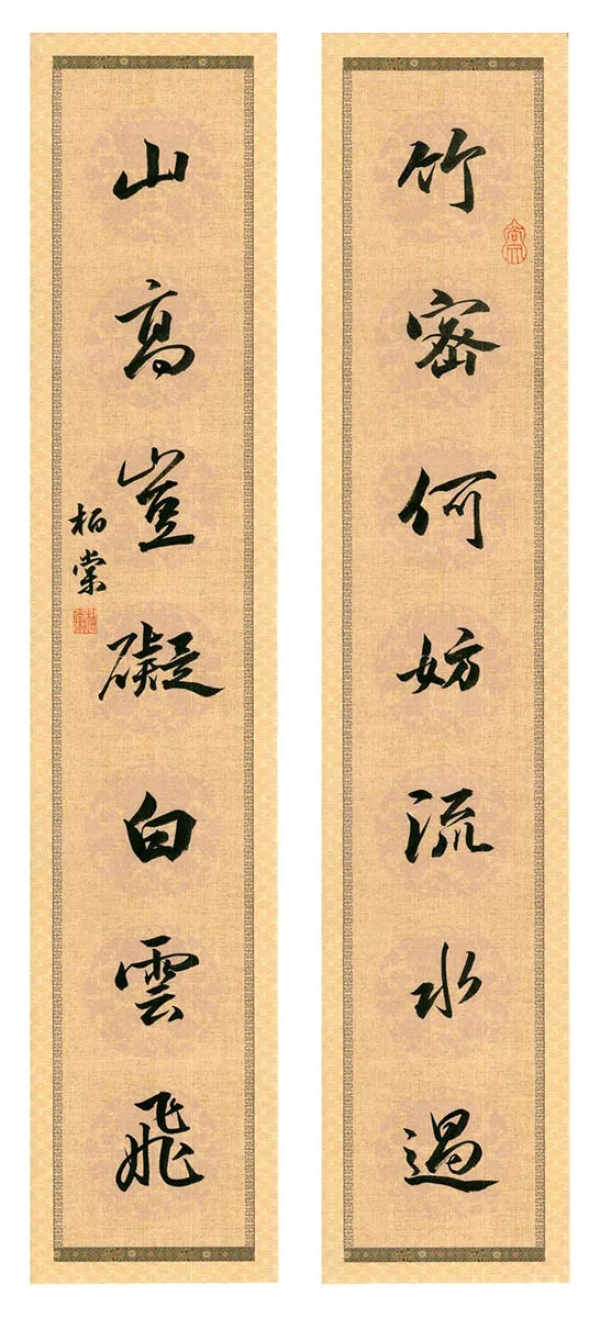 竹密何妨流水過
山高豈礙白雲飛
柏棠